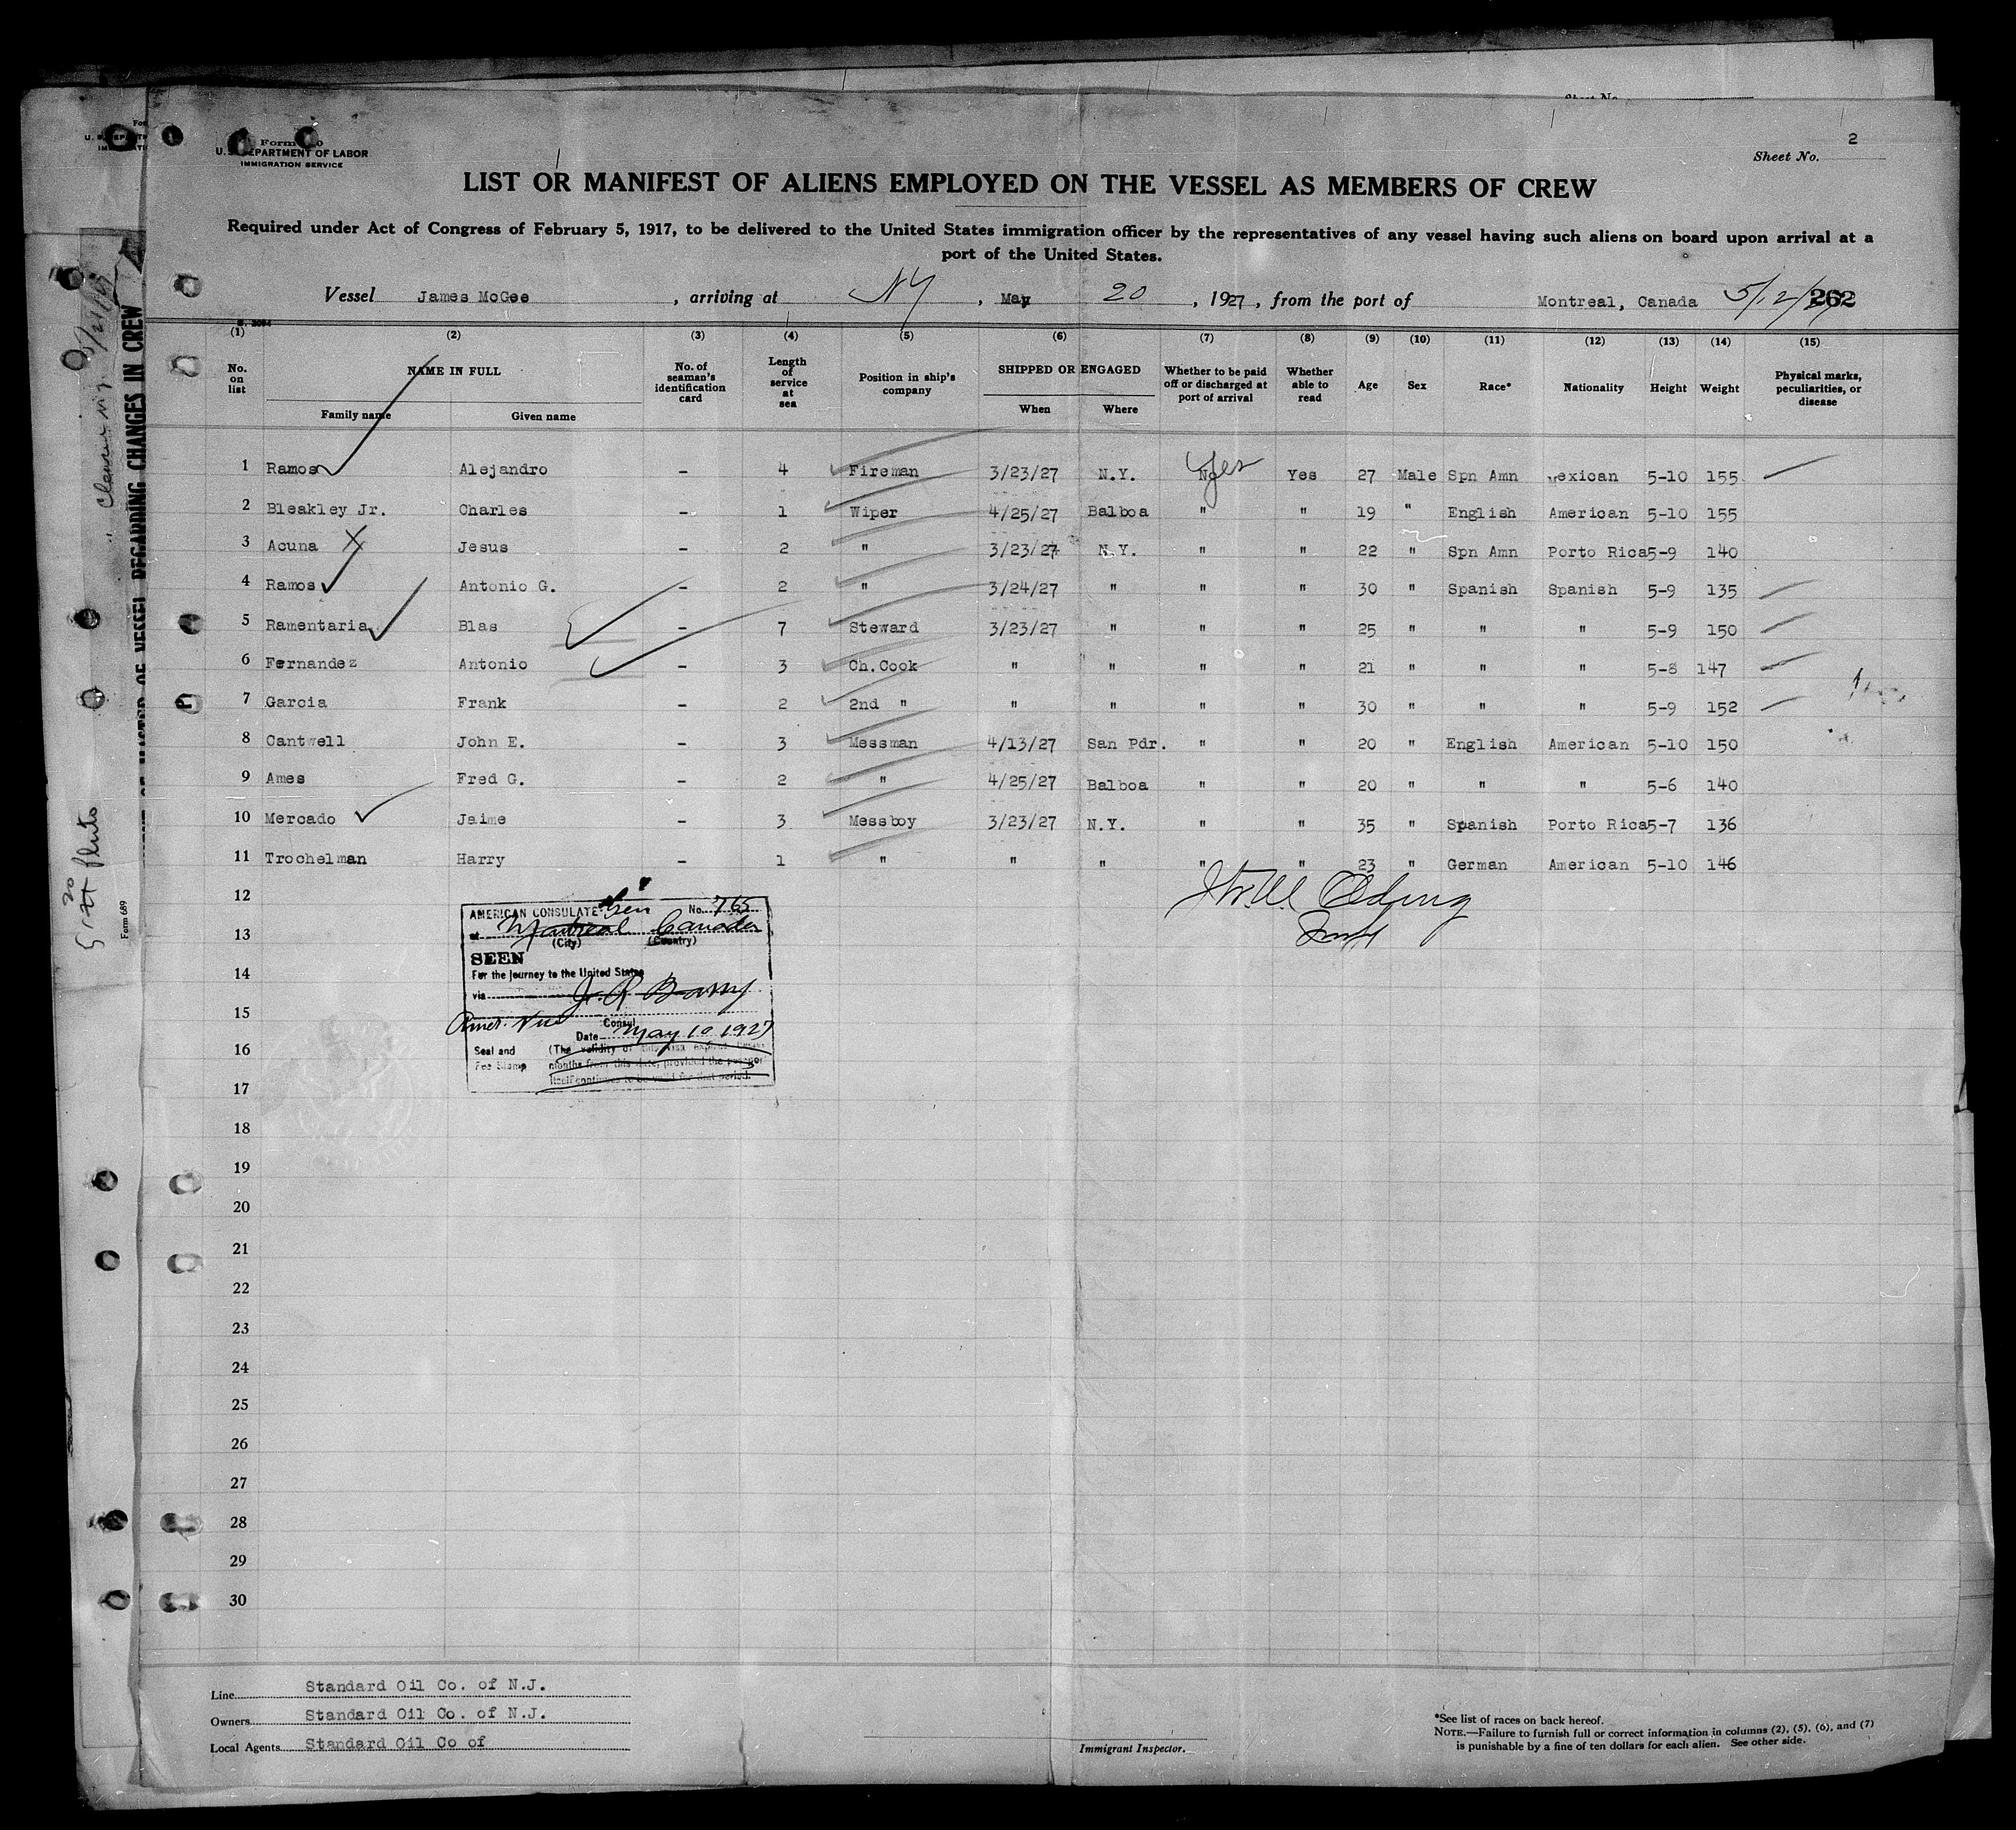 Sheet No. 2
U. S. DEPARTMENT OF LABOR
IMMIGRATION SERVICE
LIST OR MANIFEST OF ALIENS EMPLOYED ON THE VESSEL AS MEMBERS OF CREW
Required under Act of Congress of February 5, 1917, to be delivered to the United States immigration officer by the representatives of any vessel having such aliens on board upon arrival at a
port of the United States.
Vessel James McGee, arriving at NY, May 20, 1927, from the port of Montreal, Canada 5/12/27 262
(1) (2) (3) (4) (5) (6) (7) (8) (9) (10) (11) (12) (13) (14) (15)
No. on list NAME IN FULL Family name Given name No. of seaman's identification card Length of service at sea Position in ship's company SHIPPED OR ENGAGED When Where Whether to be paid off or discharged at port of arrival Whether able to read Age Sex Race* Nationality Height Weight Physical marks, peculiarities, or disease
1 Ramos Alejandro – 4 Fireman 3/23/27 N.Y. No Yes Yes 27 Male Spn Amn Mexican 5-10 155
2 Bleakley Jr. Charles – 1 Wiper 4/25/27 Balboa " " 19 " English American 5-10 155
3 Acuna Jesus – 2 " 3/23/27 N.Y. " " 22 " Spn Amn Porto Rica 5-9 140
4 Ramos Antonio G. – 2 " 3/24/27 " " " 30 " Spanish Spanish 5-9 135
5 Ramentaria Blas – 7 Steward 3/23/27 " " " 25 " " " 5-9 150
6 Fernandez Antonio – 3 Ch.Cook " " " " 21 " " " 5-8 147
7 Garcia Frank – 2 2nd " " " " " 30 " " " 5-9 152
8 Cantwell John E. – 3 Messman 4/13/27 San Pdr. " " 20 " English American 5-10 150
9 Ames Fred G. – 2 " 4/25/27 Balboa " " 20 " " " 5-6 140
10 Mercado Jaime – 3 Messboy 3/23/27 N.Y. " " 35 " Spanish Porto Rica 5-7 136
11 Trochelman Harry – 1 " " " " " 23 " German American 5-10 146
12
13
14
15
16
17
18
19
20
21
22
23
24
25
26
27
28
29
30
AMERICAN CONSULATE Gen No. 765
at Montreal Canada
(City) (Country)
SEEN
For the journey to the United States
via
Consul
Date May 10 1927
Seal and
Fee Stamp
(The validity of this visa expires
months from this date, provided the passport
itself continues to be valid for that period.
Line Standard Oil Co. of N.J.
Owners Standard Oil Co. of N.J.
Local Agents Standard Oil Co of
Immigrant Inspector.
*See list of races on back hereof.
NOTE.—Failure to furnish full or correct information in columns (2), (5), (6), and (7)
is punishable by a fine of ten dollars for each alien. See other side.
REGARDING CHANGES IN CREW
Form 689